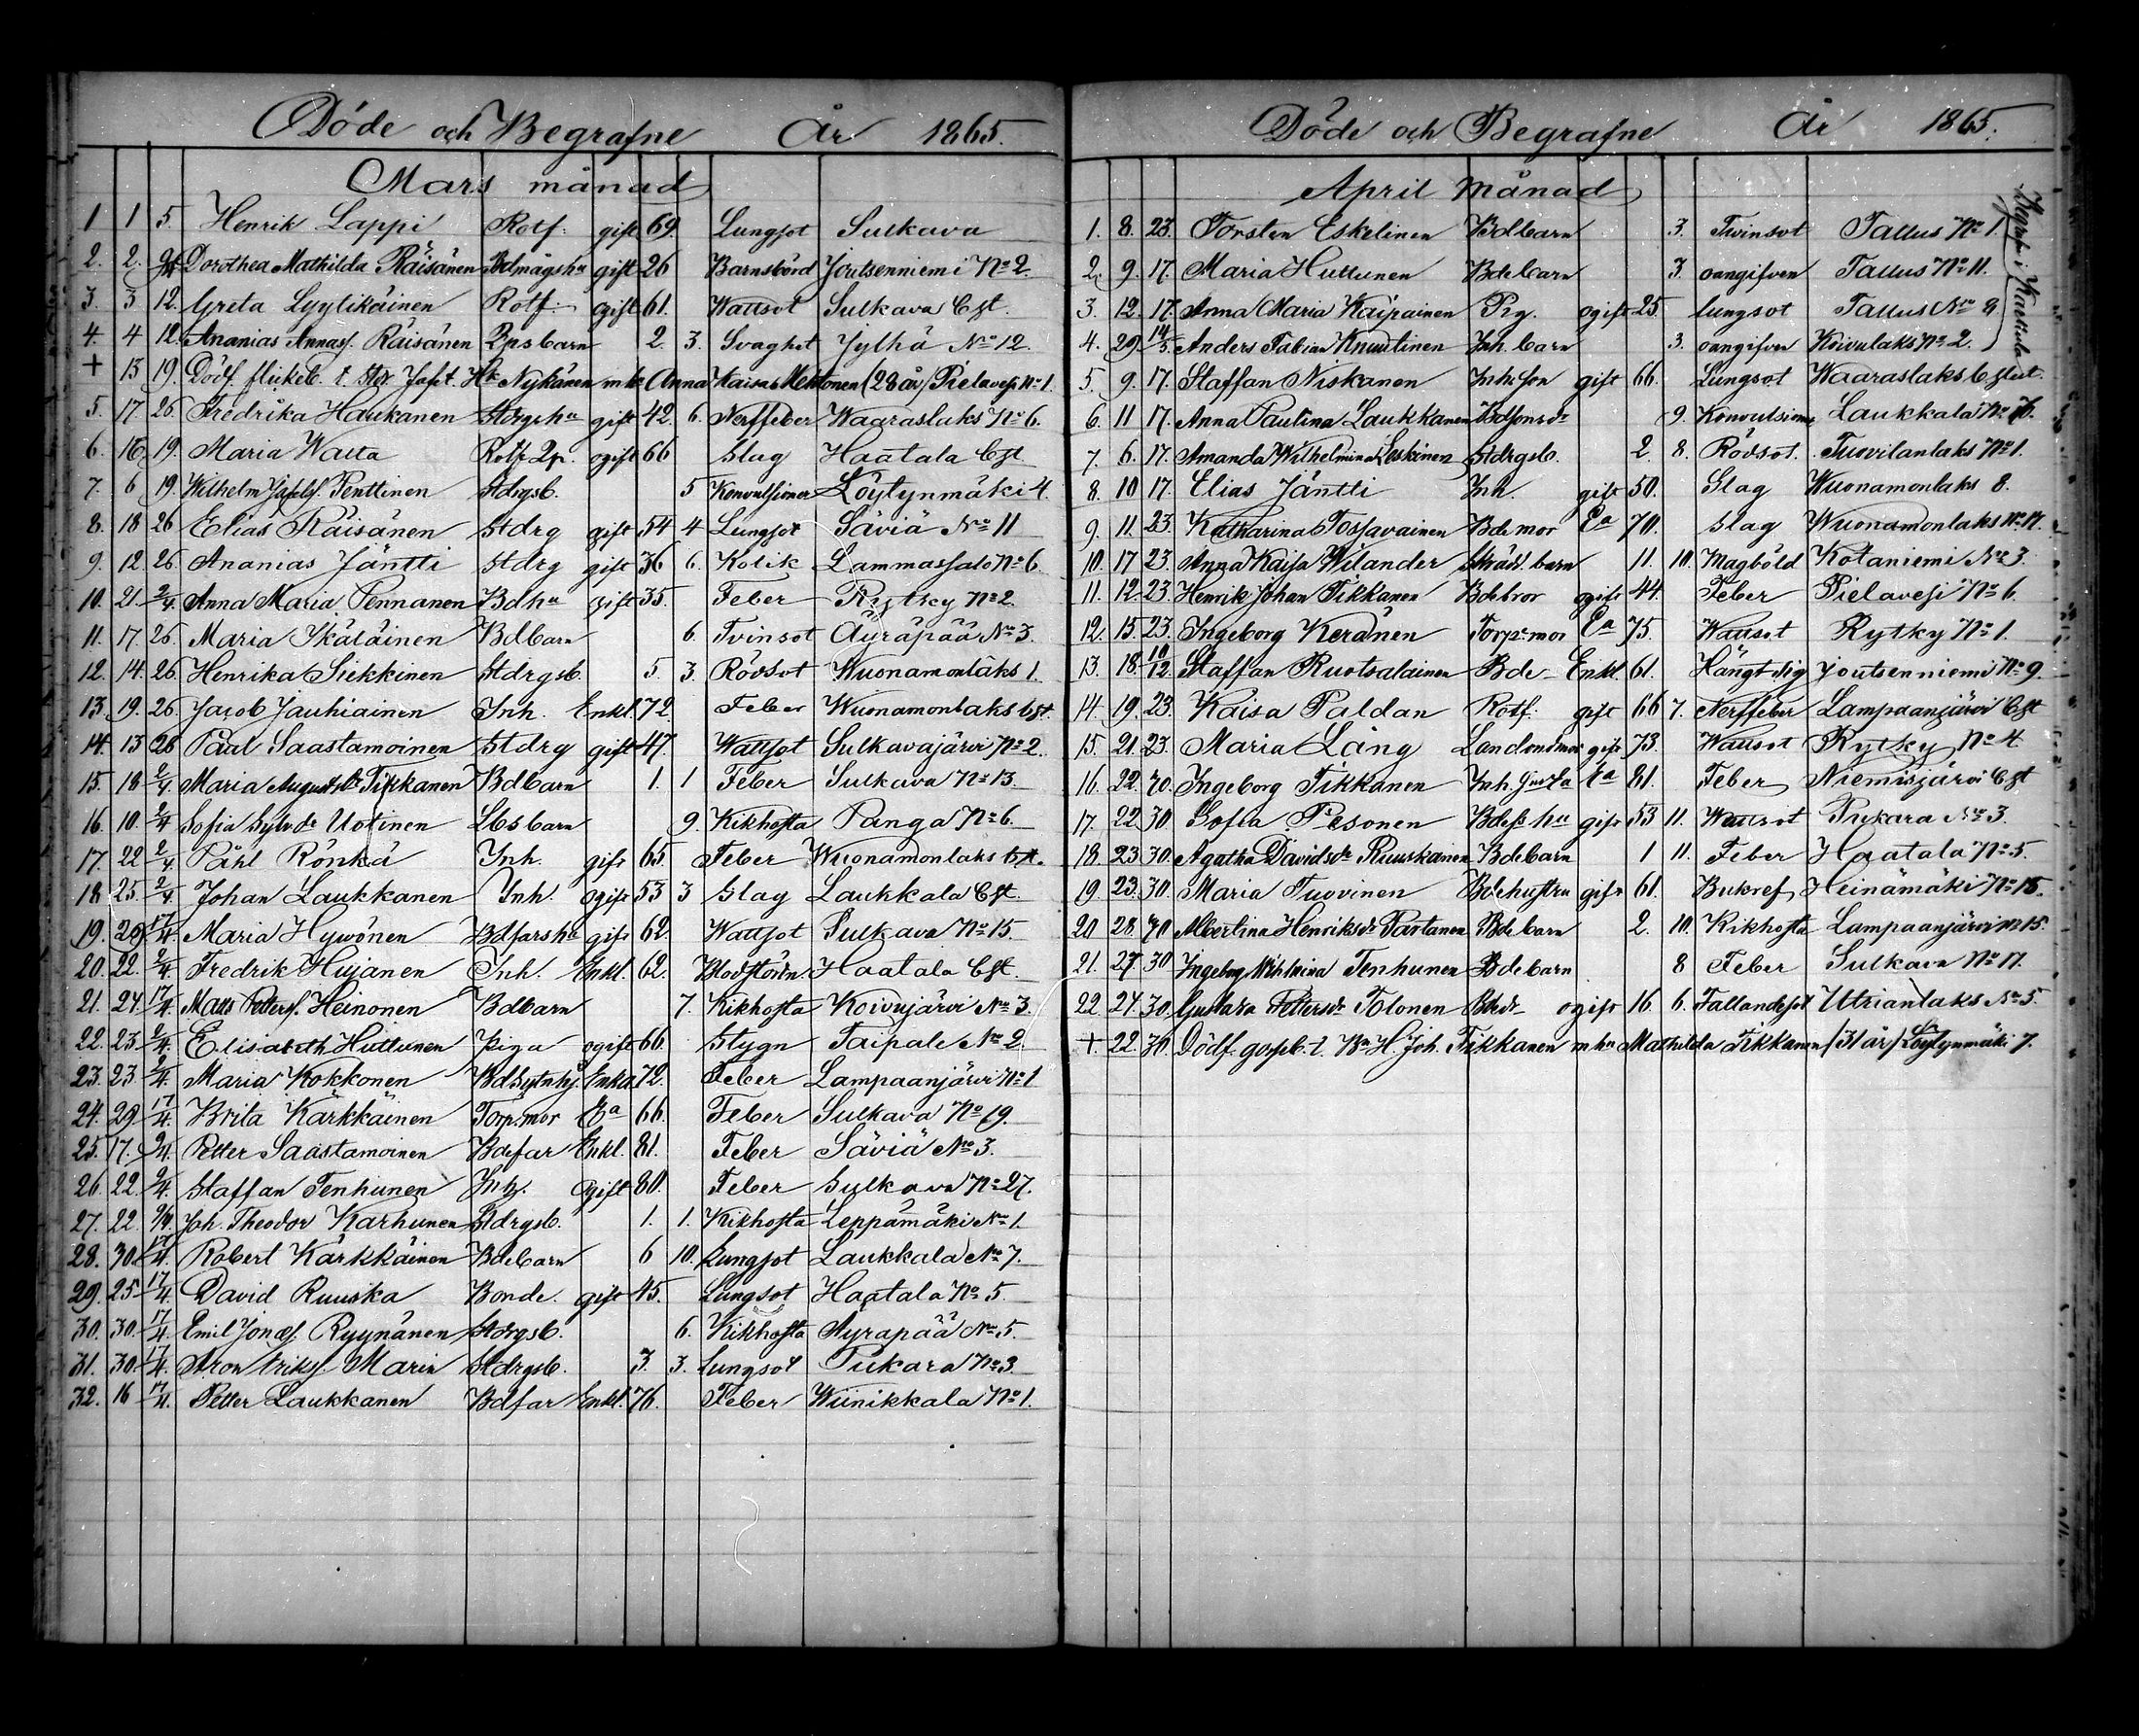 Döde och Begrafne År 1865.
Mars månad
1 1 5. Henrik Lappi Rotf. gift 69. Lungsot Sulkava
2. 2. Dorothea Mathilda Räisänen Bdmågshu gift 26 Barnsbörd Joutsenniemi No 2.
3. 3 12. Greta Lyytikäinen Rotf. ogift 61. Wattsot Sulkava Cst.
4. 4 12. Ananias Annass. Räisänen Rpsbarn 2. 3. Svaghet Jylhä No 12.
+ 13 19. Dödf. flickeb. t. Stdr Jafet Hk Nykänen m. hu Anna Kaisa Mertonen (28 år) Pielavesi No 1.
5. 17. 26. Fredrika Haukanen Stdrgshu gift 42. 6. Nerffeber Waaraslaks No 6.
6. 16 19. Maria Watta Rotf. ogift 66 Slag Haatala Cst
7. 6 19. Wilhelm Jafets. Penttinen Stdrgsb. 5 Konvulsioner Löytynmäki 4.
8. 18 26 Elias Räisänen Stdrg gift 54 4 Lungsot Säviä No 11
9. 12. 26. Ananias Jäntti Stdrg gift 36 6. Kolik Lammassalo No 6.
10. 21. 2/4. Anna Maria Pennanen Bdhu gift 35. Feber Rytky No 2.
11. 17. 26. Maria Ikäläinen Bdbarn 6. Tvinsot Äyräpää No 3.
12. 14. 26. Henrika Sikkinen Stdrgsb. 5. 3. Rödsot Wuonamonlaks 1.
13. 19. 26. Jacob Jauhiainen Inh. Enkl. 72. Feber Wuonamonlaks Cst.
14. 13 26 Paul Saastamoinen Stdrg gift 47. Wattsot Sulkavajärvi No 2.
15. 18 2/4. Maria Augustdr Tikkanen Bdbarn 1. 1 Feber Sulkava No 13.
16. 10. 2/4 Sofia Sylvdr Uotinen Lbsbarn 9. Kikhosta Panga No 6.
17. 22 2/4. Påhl Rönkä Inh. gift 65. Feber Wuonamonlaks Cst.
18 25. 2/4. Johan Laukkanen Inh. ogift 53 3 Slag Laukkala Cst.
19. 29 17/4. Maria Hyvönen Bdfarshu gift 62. Wattsot Sulkava No 15.
20. 22. 2/4. Fredrik Hujanen Inh. Enkl. 62. Blodstörtn Haatala Cst.
21. 24. 17/4. Matts Petters. Heinonen Bdbarn 7. Kikhosta Koivujärvi No 3.
22. 23 2/4. Elisabeth Huttunen Piga ogift 66. Stygn Taipale No 2.
23. 23. 2/4. Maria Kokkonen Bdsytnhj Enka 72. Feber Lampaanjärvi No 1
24. 29 17/4. Brita Kärkkäinen Torp.mor Ea 66. Feber Sulkava No 19.
25. 17. 2/4. Petter Saastamoinen Bdefar Enkl. 81. Feber Säviä No 3.
26. 22. 2/4. Staffan Tenhunen Inh. gift 80. Feber Sulkava No 27.
27. 22. 2/4. Joh. Theodor Karhunen Stdrgsb. 1. 1. Kikhosta Leppämäki No 1.
28. 30. 17/4. Robert Kärkkäinen Bdebarn 6 10. Lungsot Laukkala No 7.
29. 25 17/4. David Ruuska Bonde. gift 45. Lungsot Haatala No 5.
30. 30. 17/4. Emil Jonas. Ryynänen Stdrgsb. 6. Kikhosta Äyräpää No 5.
31. 30. 17/4. Aron Eriks. Marin Stdrgsb. 3. 3. Lungsot Pukara No 3
32. 16 17/4. Petter Laukkanen Bdfar Enkl. 76. Feber Wiinikkala No 1.
Döde och Begrafne År 1865.
April Månad
1. 8. 23. Torsten Eskelinen Bdbarn 3. Twinsot Tallus No 1.
2. 9. 17. Maria Huttunen Bdebarn 3. oangifven Tallus No 11.
3. 12. 17. Anna Maria Kaipainen Pig. ogift 25. lungsot Tallus No 9.
4. 29 14/5 Anders Fabian Knuutinen Inh. barn 3. oangifven Koivulaks No 2.
Begrafn i Karttula
5. 9. 17. Staffan Niskanen Inh. son gift 66. Lungsot Waaraslaks
6. 11 17. Anna Paulina Laukkanen Bdsonsdr 9. Konvulsioner Laukkala No
7. 6. 17. Amanda Wilhelmina Leskinen Stdrgsb. 2. 8. Rödsot. Tuovilanlaks No 1.
8. 10 17. Elias Jäntti Inh. gift 50. Slag Wuonamonlaks 8.
9. 11. 23. Katharina Tossavainen Bdemor Ea 70. Slag Wuonamonlaks No 17.
10. 17 23. Anna Kaisa Wilander Skräd. barn 11. 10. Magböld Kotaniemi No 3.
11. 12. 23. Henrik Johan Tikkanen Bdebror ogift 44. Feber Pielavesi No 6.
12. 15. 23. Ingeborg Keränen Torp.mor Ea 75. Wattsot Rytky No 1.
13. 18 10/12 Staffan Ruotsalainen Bde Enkl. 61. Hängt sig Joutsenniemi No 9.
14. 19. 23. Kaisa Paldan Rotf. gift 66 7. Nerffeber Lampaanjärvi Cst
15. 21. 23. Maria Lång gift 73. Wattsot Rytky No 4
16. 22. 30. Ingeborg Tikkanen Inh. Ea 81. Feber Niemisjärvi Cst
17. 22 30 Sofia Pesonen Bdess hu gift 53 11. Wattsot Pukara No 3.
18 23 30. Agatha Davidsdr Ruuskanen Bdebarn 1 11. Feber Haatala No 5.
19. 23. 30. Maria Tuovinen Bdehustru gift 61. Bukref Heinämäki No 15.
20 28. 30 Albertina Henriksdr Partanen Bdebarn 2. 10. Kikhosta Lampaanjärvi No 15.
21. 27 30 Ingeborg Wilhelmina Tenhunen Bdebarn 8 Feber Sulkava No 17.
22. 24. 30. Gustava Pettersdr Tolonen Bdedr ogift 16. 6. Fallandesot Utrianlaks No 5.
+. 22. 30. Dödf. gosseb. t. Bn H. Joh. Tikkanen m. hu Mathilda Tikkanen (31 år) Löytynmäki 7.